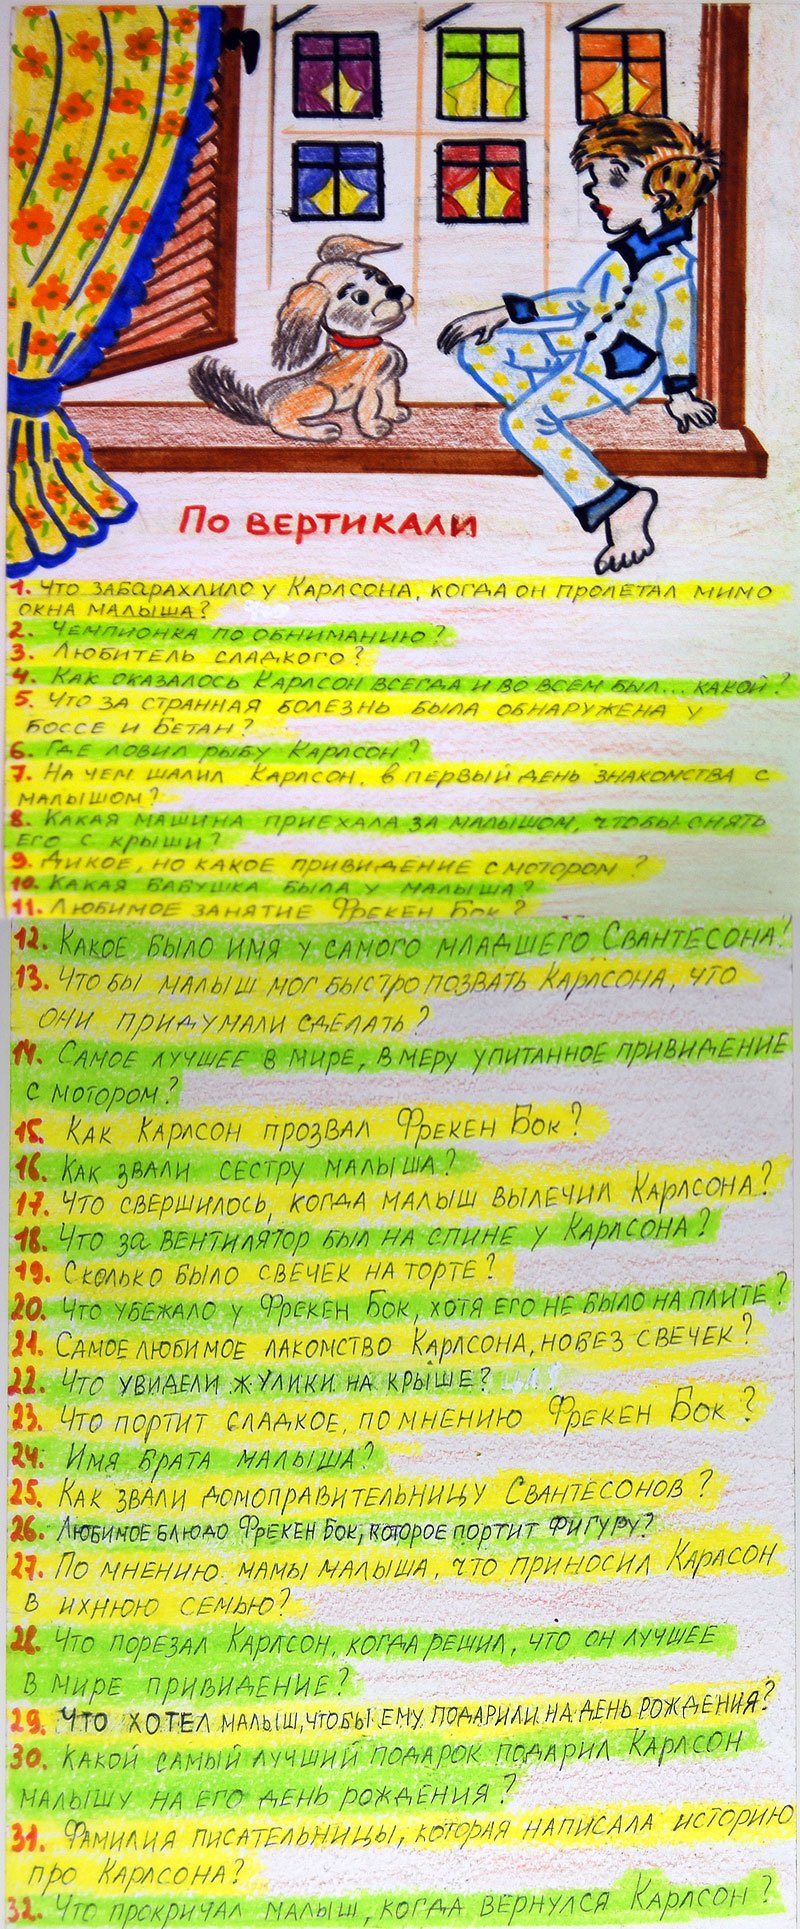 По вертикали
1. Что забарахлило у Карлсона, когда он пролетал мимо
окна малыша?
2. Чемпионка по обниманию?
3. Любитель сладкого?
4. Как оказалось Карлсон всегда и во всем был... какой?
5. Что за странная болезнь была обнаружена у
Боссе и Бетан?
6. Где ловил рыбу Карлсон?
7. На чем шалил Карлсон, в первый день знакомства с
малышом?
8. Какая машина приехала за малышом, чтобы снять
его с крыши?
9. Дикое, но какое привидение с мотором?
10. Какая бабушка была у малыша?
11. Любимое занятие Фрекен Бок?
12. Какое было имя у самого младшего Свантесона?
13. Что бы малыш мог быстро позвать Карлсона, что
они придумали сделать?
14. Самое лучшее в мире, в меру упитанное привидение
с мотором?
15. Как Карлсон прозвал Фрекен Бок?
16. Как звали сестру малыша?
17. Что свершилось, когда малыш вылечил Карлсона?
18. Что за вентилятор был на спине у Карлсона?
19. Сколько было свечек на торте?
20. Что убежало у Фрекен Бок, хотя его не было на плите?
21. Самое любимое лакомство Карлсона, но без свечек?
22. Что увидели жулики на крыше?
23. Что портит сладкое, по мнению Фрекен Бок?
24. Имя брата малыша?
25. Как звали домоправительницу Свантесонов?
26. Любимое блюдо Фрекен Бок, которое портит фигуру?
27. По мнению мамы малыша, что приносил Карлсон
в ихнюю семью?
28. Что порезал Карлсон, когда решил, что он лучшее
в мире привидение?
29. Что хотел малыш, чтобы ему подарили на день рождения?
30. Какой самый лучший подарок подарил Карлсон
малышу на его день рождения?
31. Фамилия писательницы, которая написала историю
про Карлсона?
32. Что прокричал малыш, когда вернулся Карлсон?